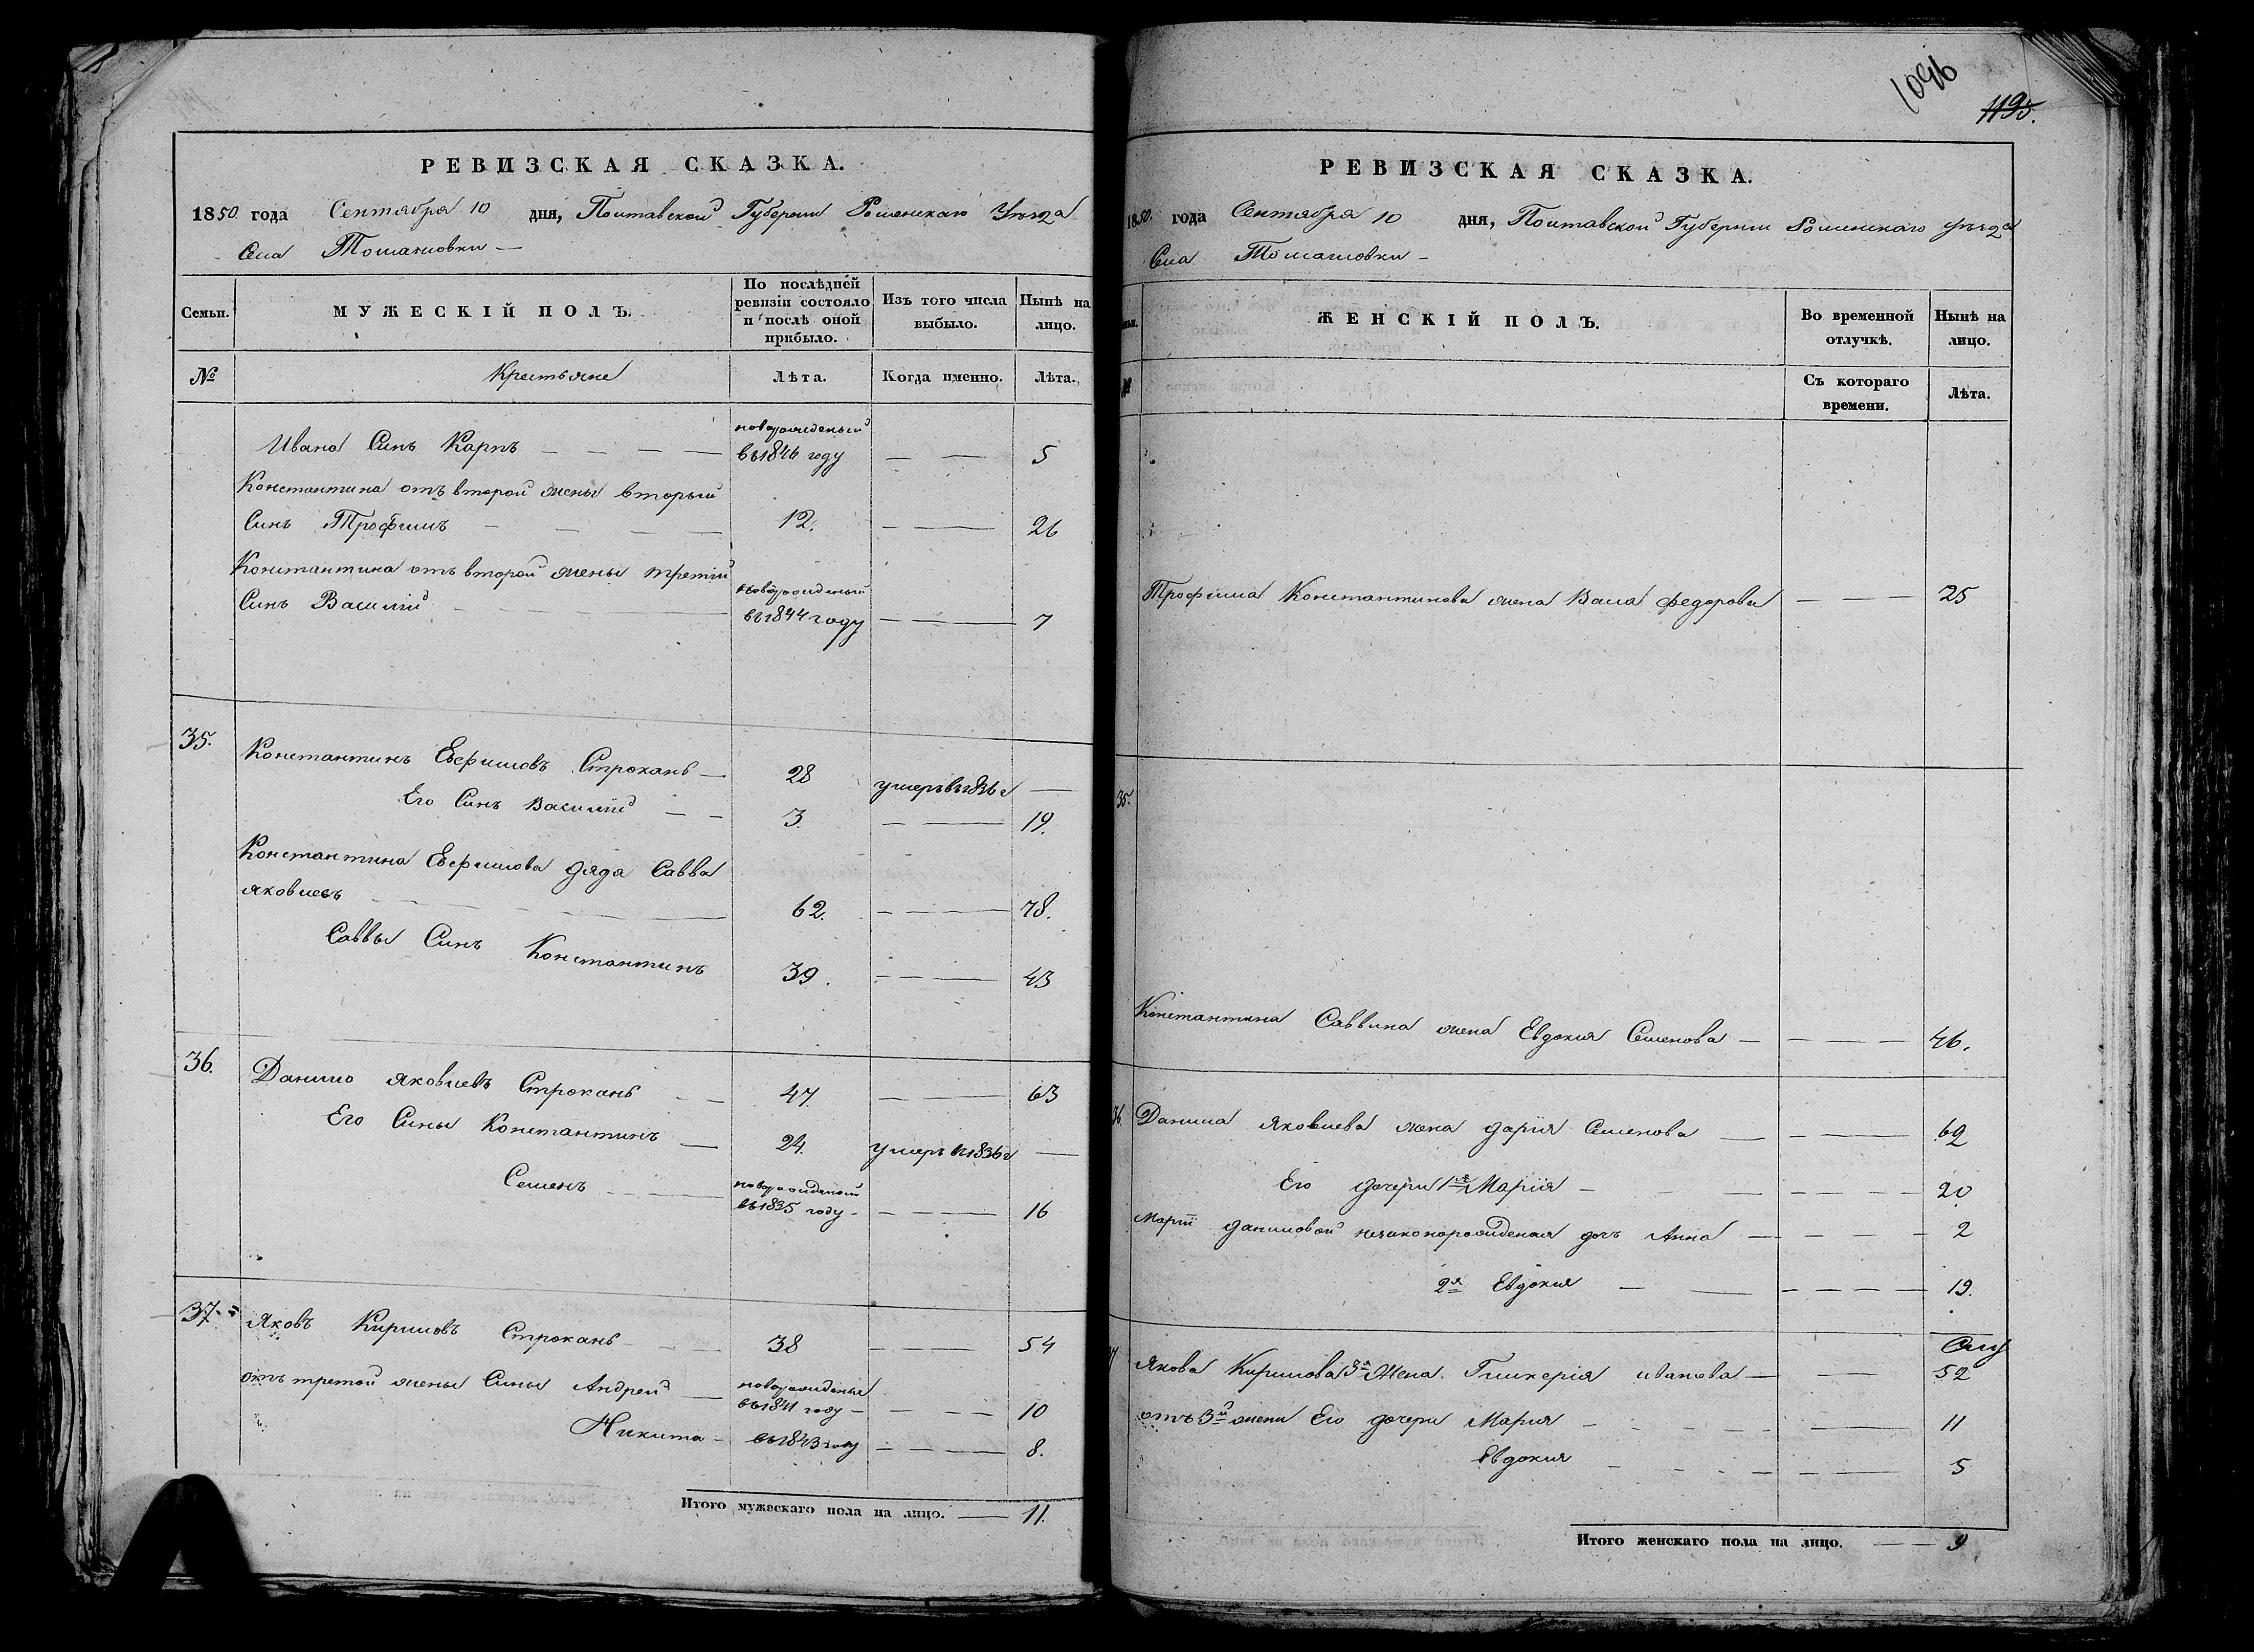 РЕВИЗСКАЯ СКАЗКА.
1850 года Сентября 10 дня, Полтавской Губернии Роменскаго Уѣзда
Села Томашовки —
Семьи.
МУЖЕСКІЙ ПОЛЪ.
По послѣдней ревизіи состояло и послѣ оной прибыло.
Изъ того числа выбыло.
Нынѣ на лицо.
№ Крестьяне Лѣта. Когда именно. Лѣта.
новорожденый
Ивана Синъ Карпъ — — — — въ 1846 году — — 5
Константина отъ второй жены вторый
Синъ Трофимъ — — — — 12. — — 26
Константина отъ второй жены третій
новорожденый
Синъ Василій — — въ 1844 году — — 7
35. Константинъ Евфимовъ Строкань — 28 умеръ въ 1836 г —
Его Синъ Василій — — 3. — — 19.
Константина Евфимова дядя Савва
Яковлевъ — — — 62. — — 78.
Саввы Синъ Константинъ 39. — — 43
36. Данило Яковлевъ Строкань — — 47. — — 63
Его Сины Константинъ — 24. умеръ въ 1836 г —
новорожденый
Семенъ — — — въ 1835 году — — — 16
37. Яковъ Кириловъ Строкань — — — 38 — — — 54
отъ третой жены Сины Андрей — новорожденыя
въ 1841 году — — — — 10
Никита — въ 1843 году — — — 8.
Итого мужескаго пола на лицо. — 11.
1096
1195.
РЕВИЗСКАЯ СКАЗКА.
1850. года Сентября 10 дня, Полтавской Губерніи Роменскаго уѣзда
Села Томашовки —
ЖЕНСКІЙ ПОЛЪ.
Во временной отлучкѣ.
Нынѣ на лицо.
№ Съ котораго времени. Лѣта.
Трофима Константинова жена Васа Федорова — — — 25
35.
Константина Саввина жена Евдокия Семенова — — — — 46.
36. Данила Яковлева жена Дарія Семенова — — — 62
Его дочери 1я Марія — — — — — — 20
Маріи Даниловой незаконорожденая дочъ Анна — — — — 2
2я Евдокия — — — — — — 19.
37 Якова Кирилова 3я Жена Гликерія иванова — — 52
отъ 3й жены Его дочери Мария — — — — — 11
Евдокия — — — — — — 5
Итого женскаго пола на лицо. — — 9